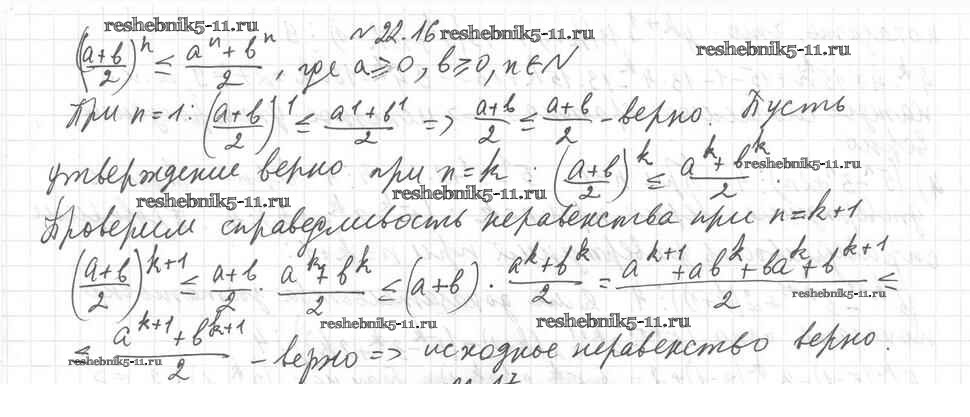 reshebnik5-11.ru
№22.16 reshebnik5-11.ru
reshebnik5-11.ru
((a+b)/2)^n ≤ (a^n+b^n)/2, где a⩾0, b⩾0, n∈N
При n=1: ((a+b)/2)^1 ≤ (a^1+b^1)/2 => (a+b)/2 ≤ (a+b)/2 - верно. Пусть
утверждение верно при n=k: ((a+b)/2)^k ≤ (a^k+b^k)/2.
reshebnik5-11.ru
reshebnik5-11.ru
reshebnik5-11.ru
Проверим справедливость неравенства при n=k+1
((a+b)/2)^(k+1) ≤ (a+b)/2 · (a^k+b^k)/2 ≤ (a+b) · (a^k+b^k)/2 = (a^(k+1)+ab^k+ba^k+b^(k+1))/2 ≤
reshebnik5-11.ru
reshebnik5-11.ru
reshebnik5-11.ru
≤ (a^(k+1)+b^(k+1))/2 - верно => исходное неравенство верно.
reshebnik5-11.ru